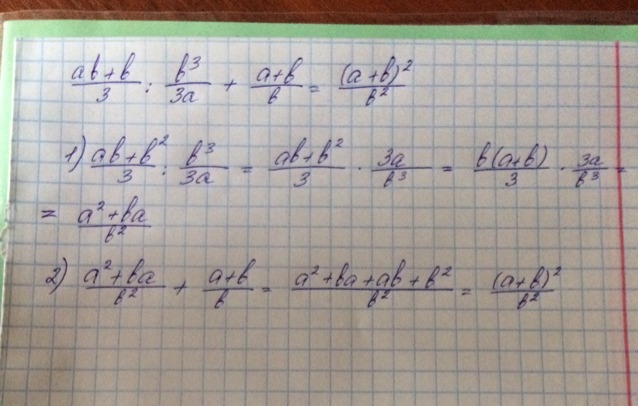 (ab+b)/3 : b³/3a + (a+b)/b = (a+b)²/b²
1) (ab+b²)/3 : b³/3a = (ab+b²)/3 · 3a/b³ = b(a+b)/3 · 3a/b³ =
= (a²+ba)/b²
2) (a²+ba)/b² + (a+b)/b = (a²+ba+ab+b²)/b² = (a+b)²/b²